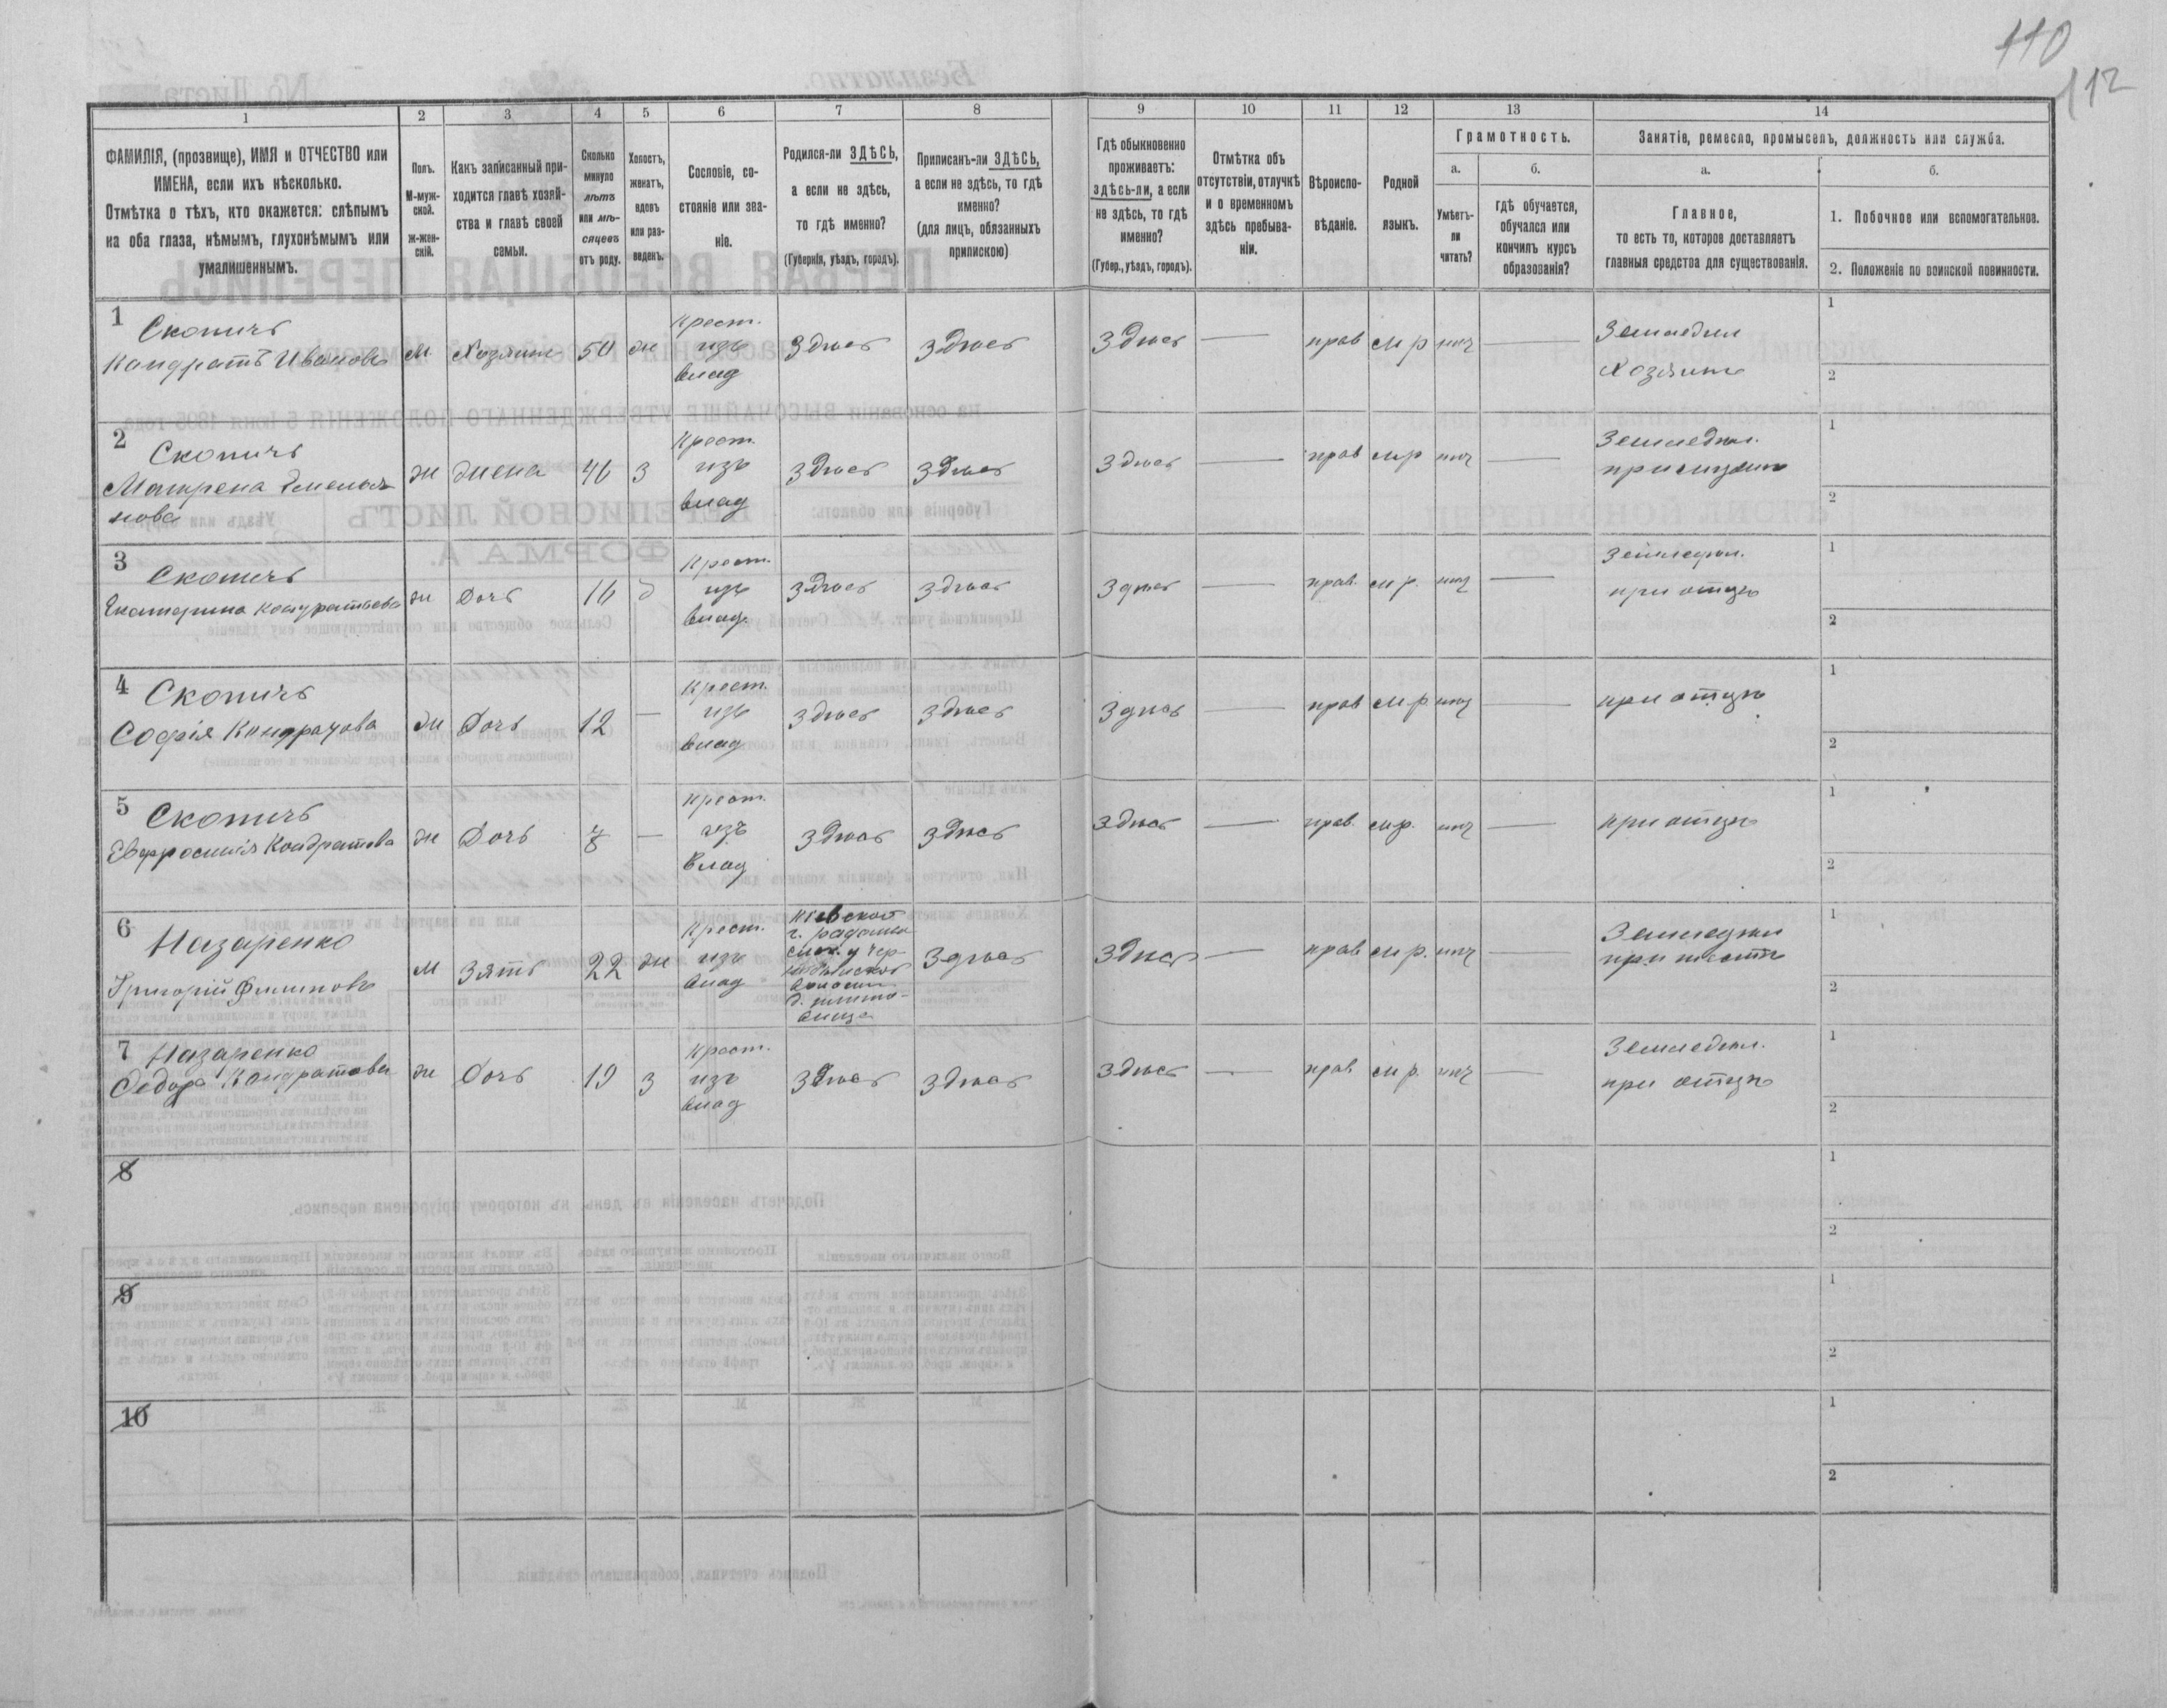 110
112
1
2
3
4
5
6
7
8
9
10
11
12
13
14
ФАМИЛІЯ, (прозвище), ИМЯ и ОТЧЕСТВО или
ИМЕНА, если ихъ нѣсколько.
Отмѣтка о тѣхъ, кто окажется: слѣпымъ
на оба глаза, нѣмымъ, глухонѣмымъ или
умалишеннымъ.
Полъ.
М-муж-
ской.
Ж-жен-
скій.
Какъ записанный при-
ходится главѣ хозяй-
ства и главѣ своей
семьи.
Сколько
минуло
лѣтъ
или мѣ-
сяцевъ
отъ роду.
Холостъ,
женатъ,
вдовъ
или раз-
веденъ.
Сословіе, со-
стояніе или зва-
ніе.
Родился-ли ЗДѢСЬ,
а если не здѣсь,
то гдѣ именно?
(Губернія, уѣздъ, городъ).
Приписанъ-ли ЗДѢСЬ,
а если не здѣсь, то гдѣ
именно?
(для лицъ, обязанныхъ
припискою)
Гдѣ обыкновенно
проживаетъ:
здѣсь-ли, а если
не здѣсь, то гдѣ
именно?
(Губер., уѣздъ, городъ).
Отмѣтка объ
отсутствіи, отлучкѣ
и о временномъ
здѣсь пребыва-
ніи.
Вѣроиспо-
вѣданіе.
Родной
языкъ.
Грамотность.
а.
Умѣетъ-
ли
читать?
б.
гдѣ обучается,
обучался или
кончилъ курсъ
образованія?
Занятіе, ремесло, промыселъ, должность или служба.
а.
Главное,
то есть то, которое доставляетъ
главныя средства для существованія.
б.
1. Побочное или вспомогательное.
2. Положеніе по воинской повинности.
1
Скопичъ
Кандратъ Ивановъ
м
Хозяинъ
50
ж
крест.
изъ
влад
Здѣсь
Здѣсь
Здѣсь
—
прав
м р
нѣт
—
Земледѣл
Хозяинъ
1
2
2
Скопичъ
ж
жена
46
з
крест.
изъ
влад
здѣсь
здѣсь
здѣсь
—
прав
мр
нѣт
—
Земледѣл.
1
2
3
Скопичъ
Екатерина Кондратьева
ж
Дочь
16
д
крест.
изъ
влад.
здѣсь
здѣсь
здѣсь
—
прав.
м р.
нѣт
—
Земледѣл.
при отцѣ
1
2
4
Скопичъ
Софія
ж
Дочь
12
—
крест.
изъ
влад
здѣсь
здѣсь
здѣсь
—
прав
м р
нѣт
—
при отцѣ
1
2
5
Скопичъ
Евфросинія Кондратова
ж
Дочь
7
—
крест.
изъ
влад
здѣсь
здѣсь
здѣсь
—
прав.
мр.
нѣт
—
при отцѣ
1
2
6
Назаренко
Григорій Филиповъ
м
зять
22
ж
крест.
изъ
влад
Кіевской
г. радомы
здѣсь
здѣсь
—
прав
м р.
нѣт
—
Земледѣл
при тестѣ
1
2
7
Назаренко
Федора Кондратова
ж
Дочь
19
з
крест.
изъ
влад
здѣсь
здѣсь
здѣсь
—
прав
м р.
нѣт
—
Земледѣл.
при отцѣ
1
2
8
1
2
9
1
2
10
1
2